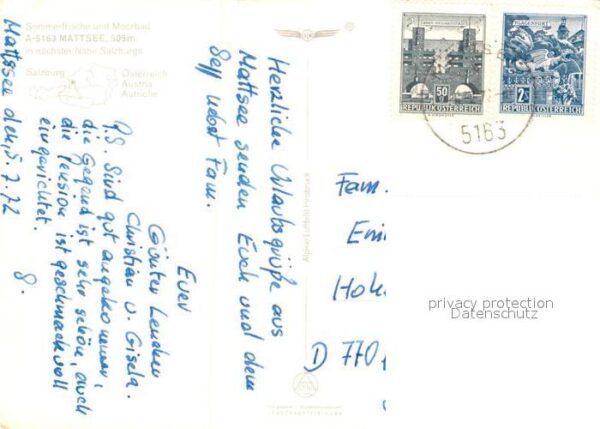 Sommerfrische und Moorbad
A-5163 MATTSEE, 505m
in nächster Nähe Salzburgs
Salzburg
Österreich
Austria
Autriche
Mattsee den, 5.7.72
Herzliche Urlaubsgrüße aus
Mattsee senden Euch und dem
nebst Fam.
Euer
Günter
Christian u. Gisela.
P.S. Sind gut angekommen,
die Gegend ist sehr schön, auch
die Pension ist geschmackvoll
eingerichtet.
50
REPUBLIK ÖSTERREICH
KLAGENFURT
2
REPUBLIK ÖSTERREICH
5163
Fam.
Hoh
D 770
privacy protection
Datenschutz